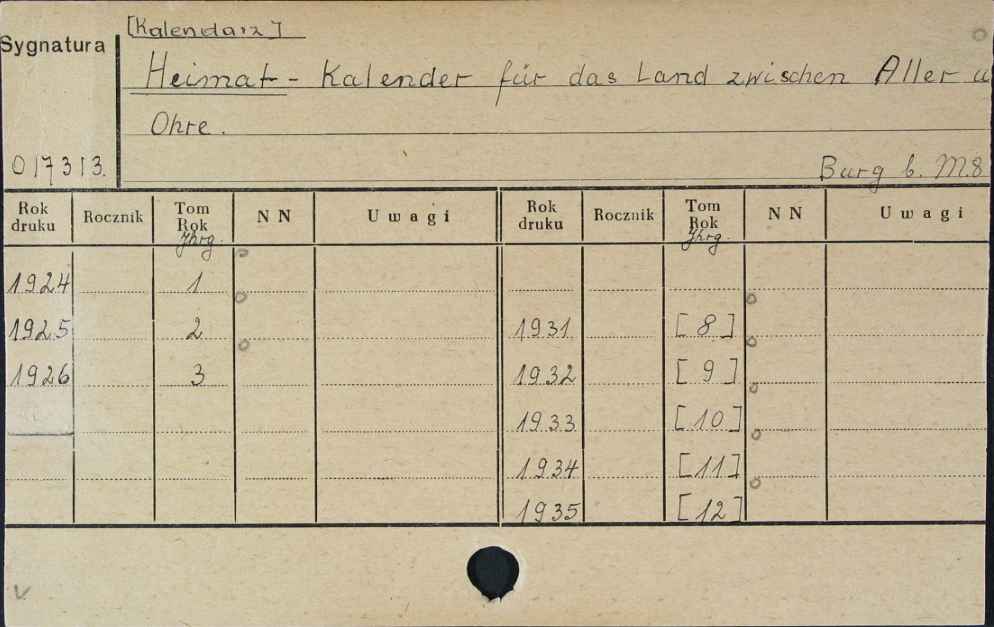 [Kalendarz]
Sygnatura
Heimat - Kalender für das Land zwischen Aller u
Ohre.
017313.
Burg b. M.8
Rok druku Rocznik Tom Rok Jhrg. NN Uwagi Rok druku Rocznik Tom Rok Jhrg. NN Uwagi
1924 1
1925 2 1931 [8]
1926 3 1932 [9]
1933 [10]
1934 [11]
1935 [12]
V